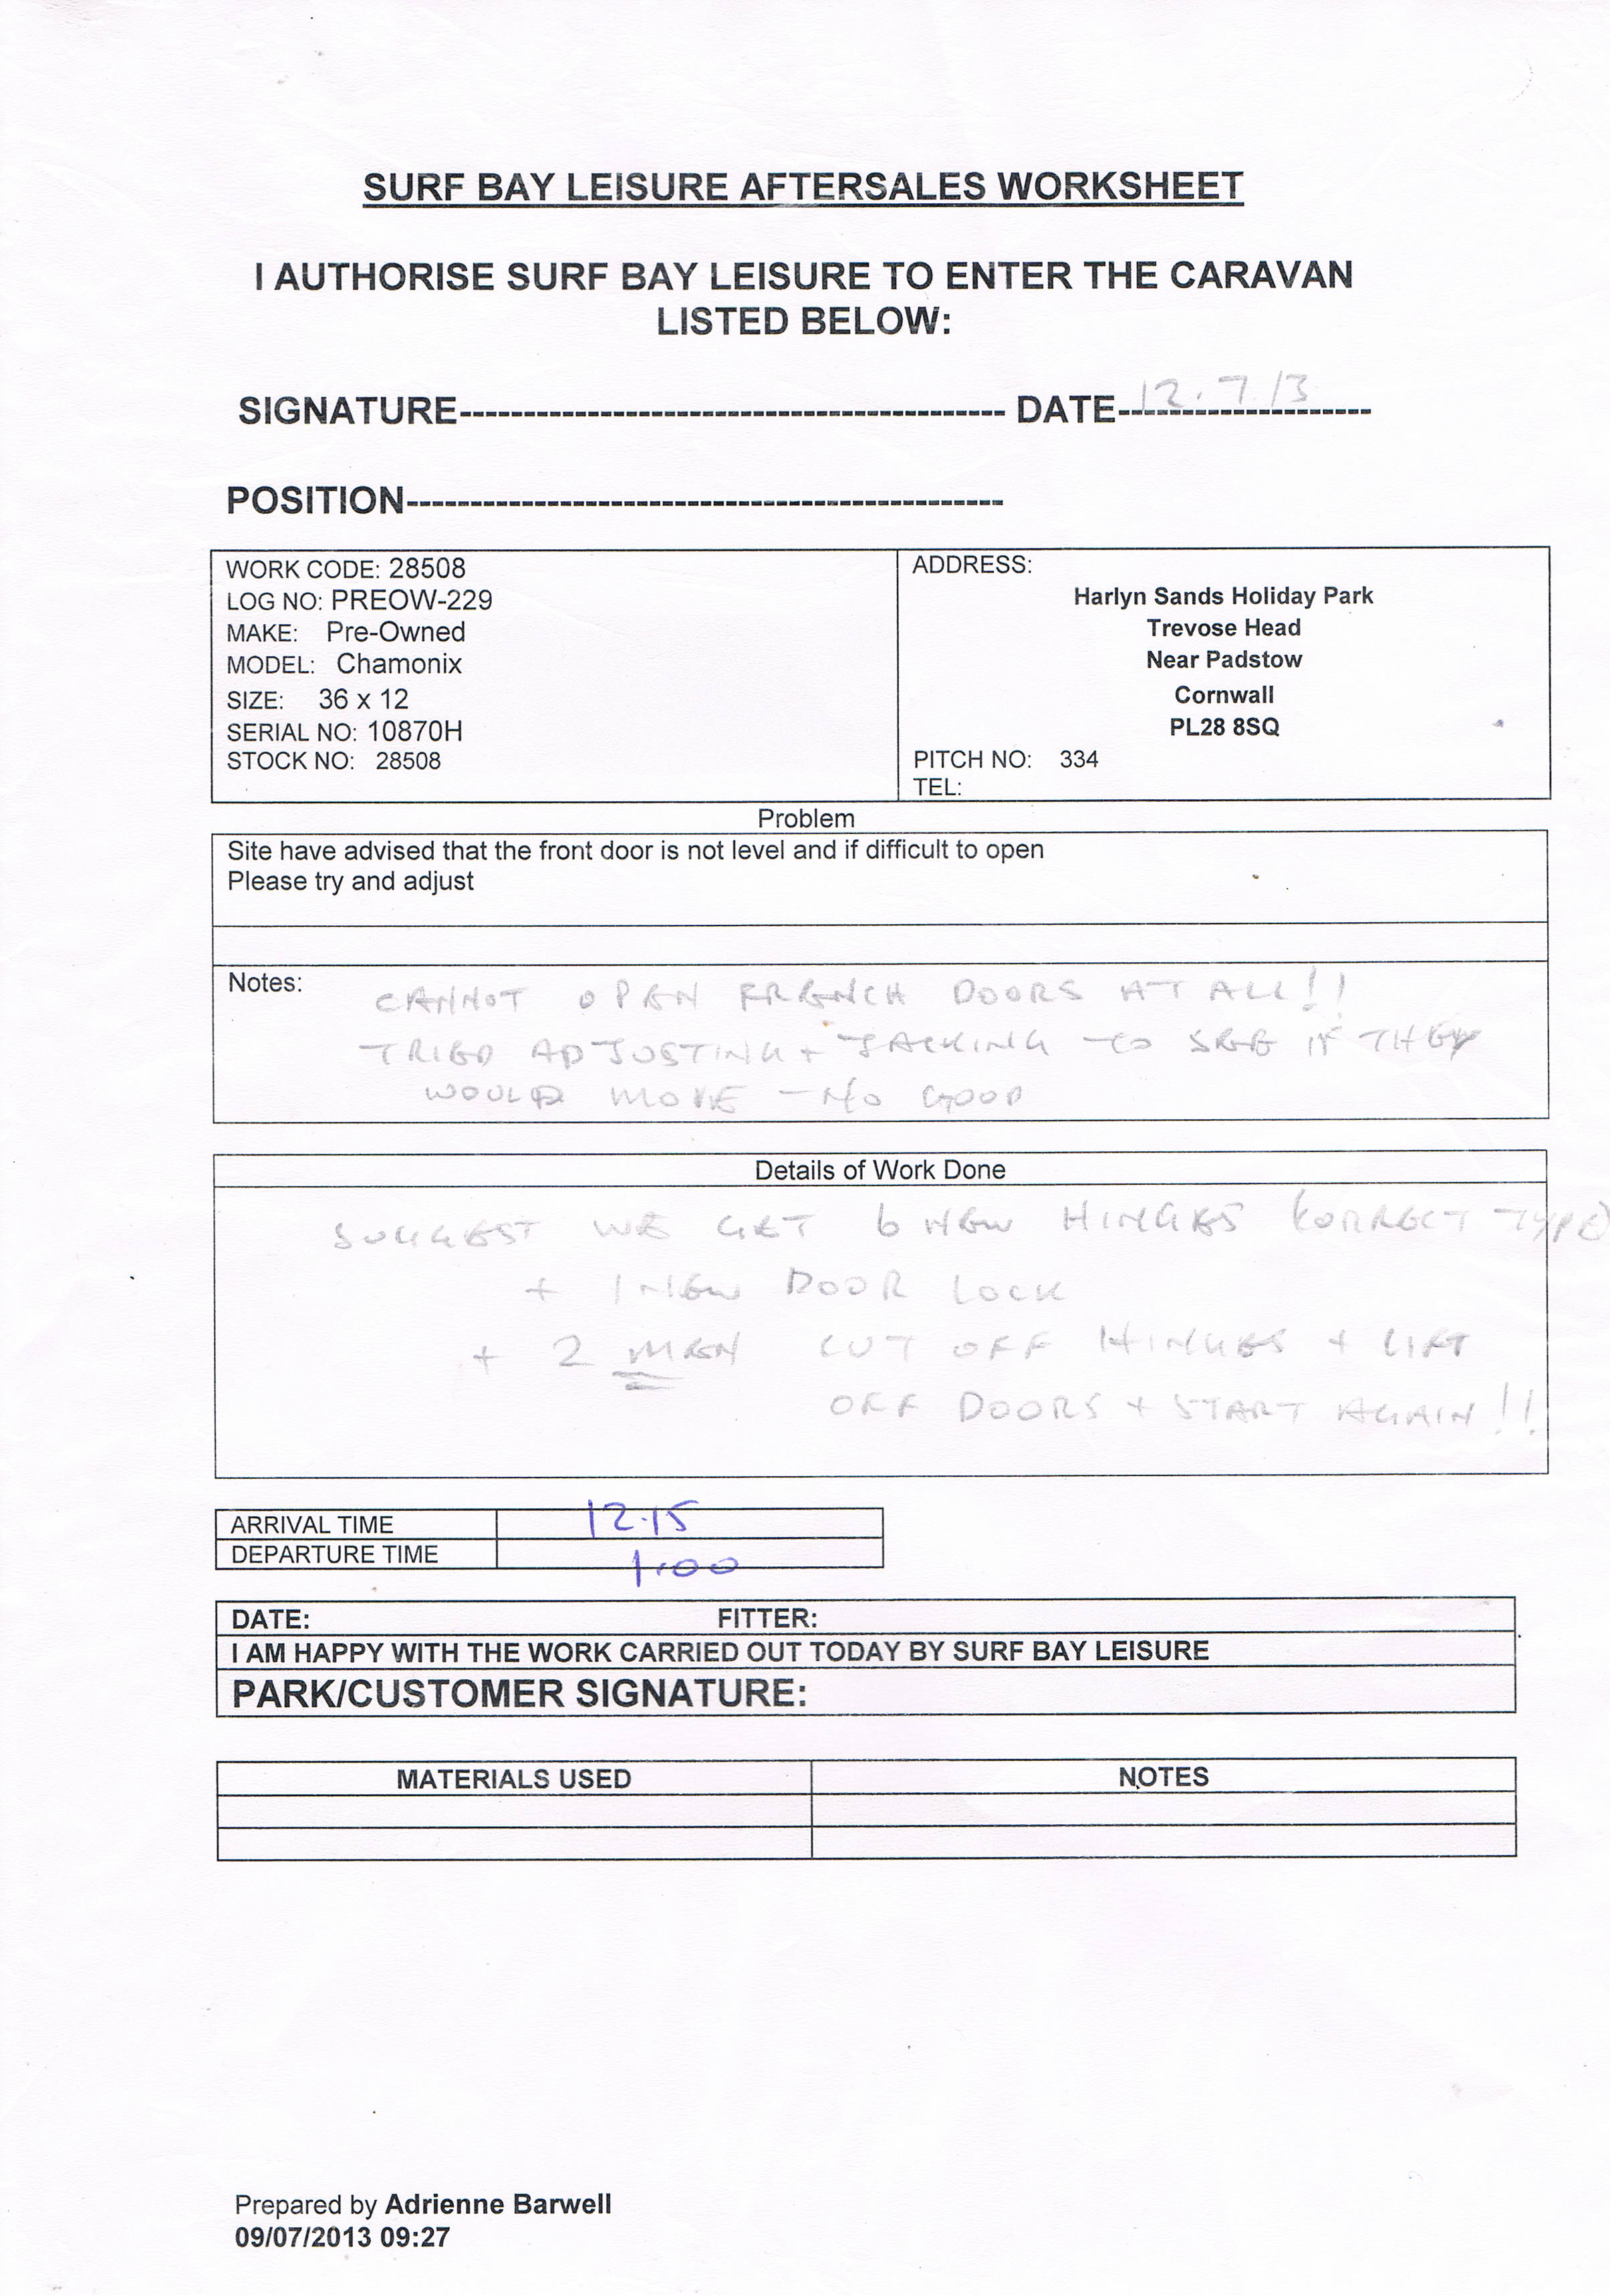 SURF BAY LEISURE AFTERSALES WORKSHEET
I AUTHORISE SURF BAY LEISURE TO ENTER THE CARAVAN
LISTED BELOW:
SIGNATURE------------------------------------------- DATE-------------------- 12.7.13
POSITION-----------------------------------------------
WORK CODE: 28508
LOG NO: PREOW-229
MAKE: Pre-Owned
MODEL: Chamonix
SIZE: 36 x 12
SERIAL NO: 10870H
STOCK NO: 28508
ADDRESS:
Harlyn Sands Holiday Park
Trevose Head
Near Padstow
Cornwall
PL28 8SQ
PITCH NO: 334
TEL:
Problem
Site have advised that the front door is not level and if difficult to open
Please try and adjust
Notes:
CANNOT OPEN FRENCH DOORS AT ALL!!
TRIED ADJUSTING + JACKING TO SEE IF THEY
WOULD MOVE – NO GOOD
Details of Work Done
SUGGEST WE GET 6 NEW HINGES (CORRECT TYPE)
+ 1 NEW DOOR LOCK
+ 2 MEN CUT OFF HINGES + LIFT
OFF DOORS + START AGAIN!!
ARRIVAL TIME 12.15
DEPARTURE TIME 1.00
DATE: FITTER:
I AM HAPPY WITH THE WORK CARRIED OUT TODAY BY SURF BAY LEISURE
PARK/CUSTOMER SIGNATURE:
MATERIALS USED NOTES
Prepared by Adrienne Barwell
09/07/2013 09:27